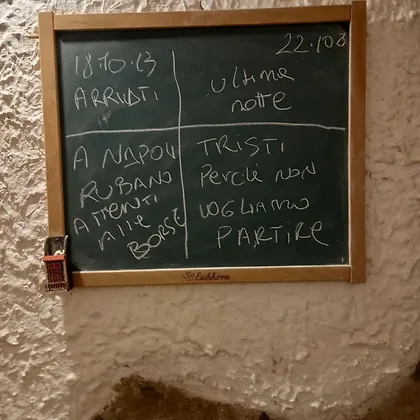 18.10.23
ARRIVATI
22.10.23
ultima
notte
A NAPOLI
RUBANO
ATTENTI
Alle
BORSE
TRISTI
Perchè non
VOGLIAMO
PARTIRE
Eichhorn